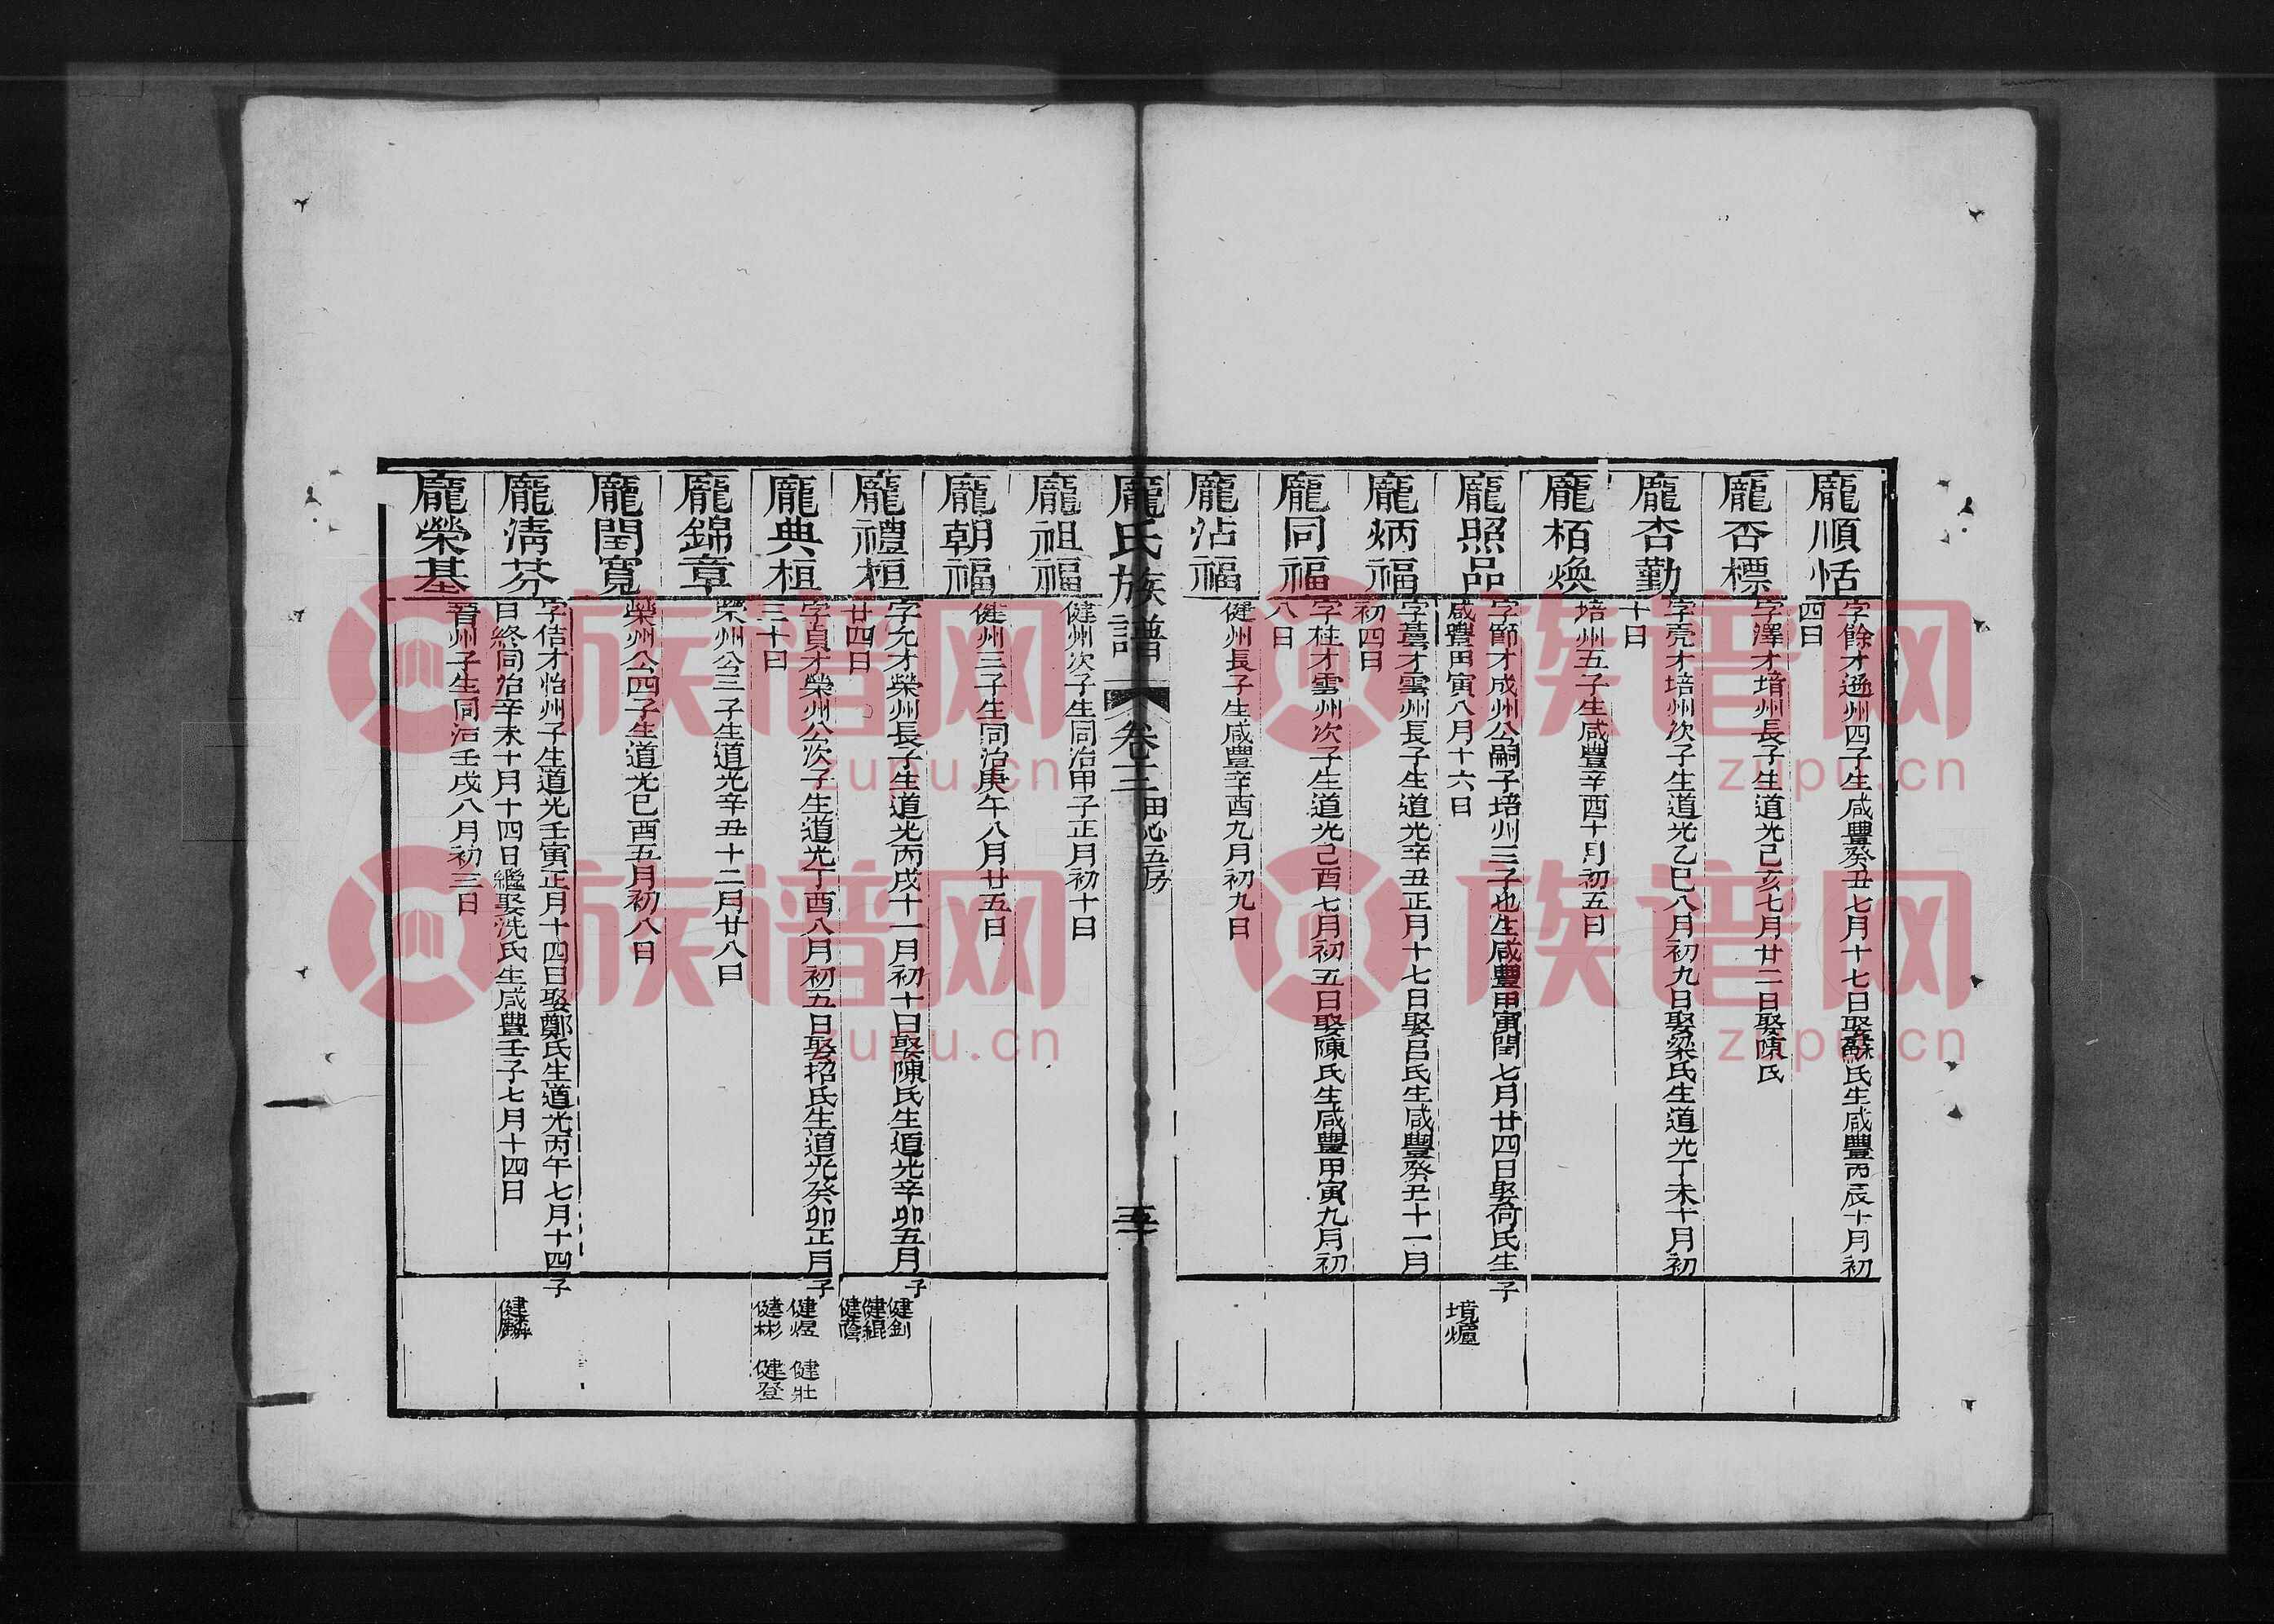 龐順恬
字餘才遜州四子生咸豐癸丑七月十七日娶蘇氏生咸豐丙辰十月初
四日
龐杏標
字澤才堉州長子生道光己亥七月廿二日娶陳氏
龐杏勤
字亮才培州次子生道光乙巳八月初九日娶梁氏生道光丁未十月初
十日
龐栢煥
培州五子生咸豐辛酉十月初五日
龐照品
字節才成州公嗣子培州三子也生咸豐甲寅閏七月廿四日娶荷氏生
咸豐甲寅八月十六日
子
境爐
龐炳福
字臺才雲州長子生道光辛丑正月十七日娶呂氏生咸豐癸丑十一月
初四日
龐同福
字柱才雲州次子生道光己酉七月初五日娶陳氏生咸豐甲寅九月初
八日
龐沾福
健州長子生咸豐辛酉九月初九日
龐氏族譜 卷三 田心五房 五
龐祖福
健州次子生同治甲子正月初十日
龐朝福
健州三子生同治庚午八月廿五日
龐禮桓
字允才榮州長子生道光丙戌十一月初十日娶陳氏生道光辛卯五月
廿四日
子
健釗
健緄
健蔭
龐典桓
字貞才榮州公次子生道光丁酉八月初五日娶招氏生道光癸卯正月
三十日
子
健煜 健壯
健彬 健登
龐錦章
榮州公三子生道光辛丑十二月廿八日
龐閏寬
榮州公四子生道光己酉五月初八日
龐淸芬
字佶才怡州子生道光壬寅正月十四日娶鄭氏生道光丙午七月十四
日終同治辛未十月十四日繼娶冼氏生咸豐壬子七月十四日
子
健麟
龐榮基
晉州子生同治壬戌八月初三日
族谱网
zupu.cn
族谱网
zupu.cn
族谱网
zupu.cn
族谱网
zupu.cn